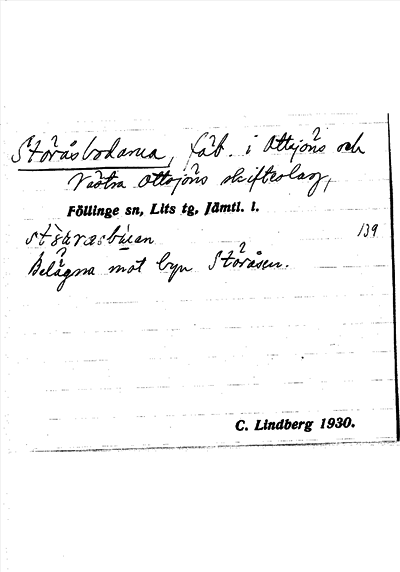 Storåsbodarna, fäb. i Ottsjöns och
Västra Ottsjöns skifteslag,
Föllinge sn, Lits tg. Jämtl. l.
139
Belägna mot byn Storåsen.
C. Lindberg 1930.